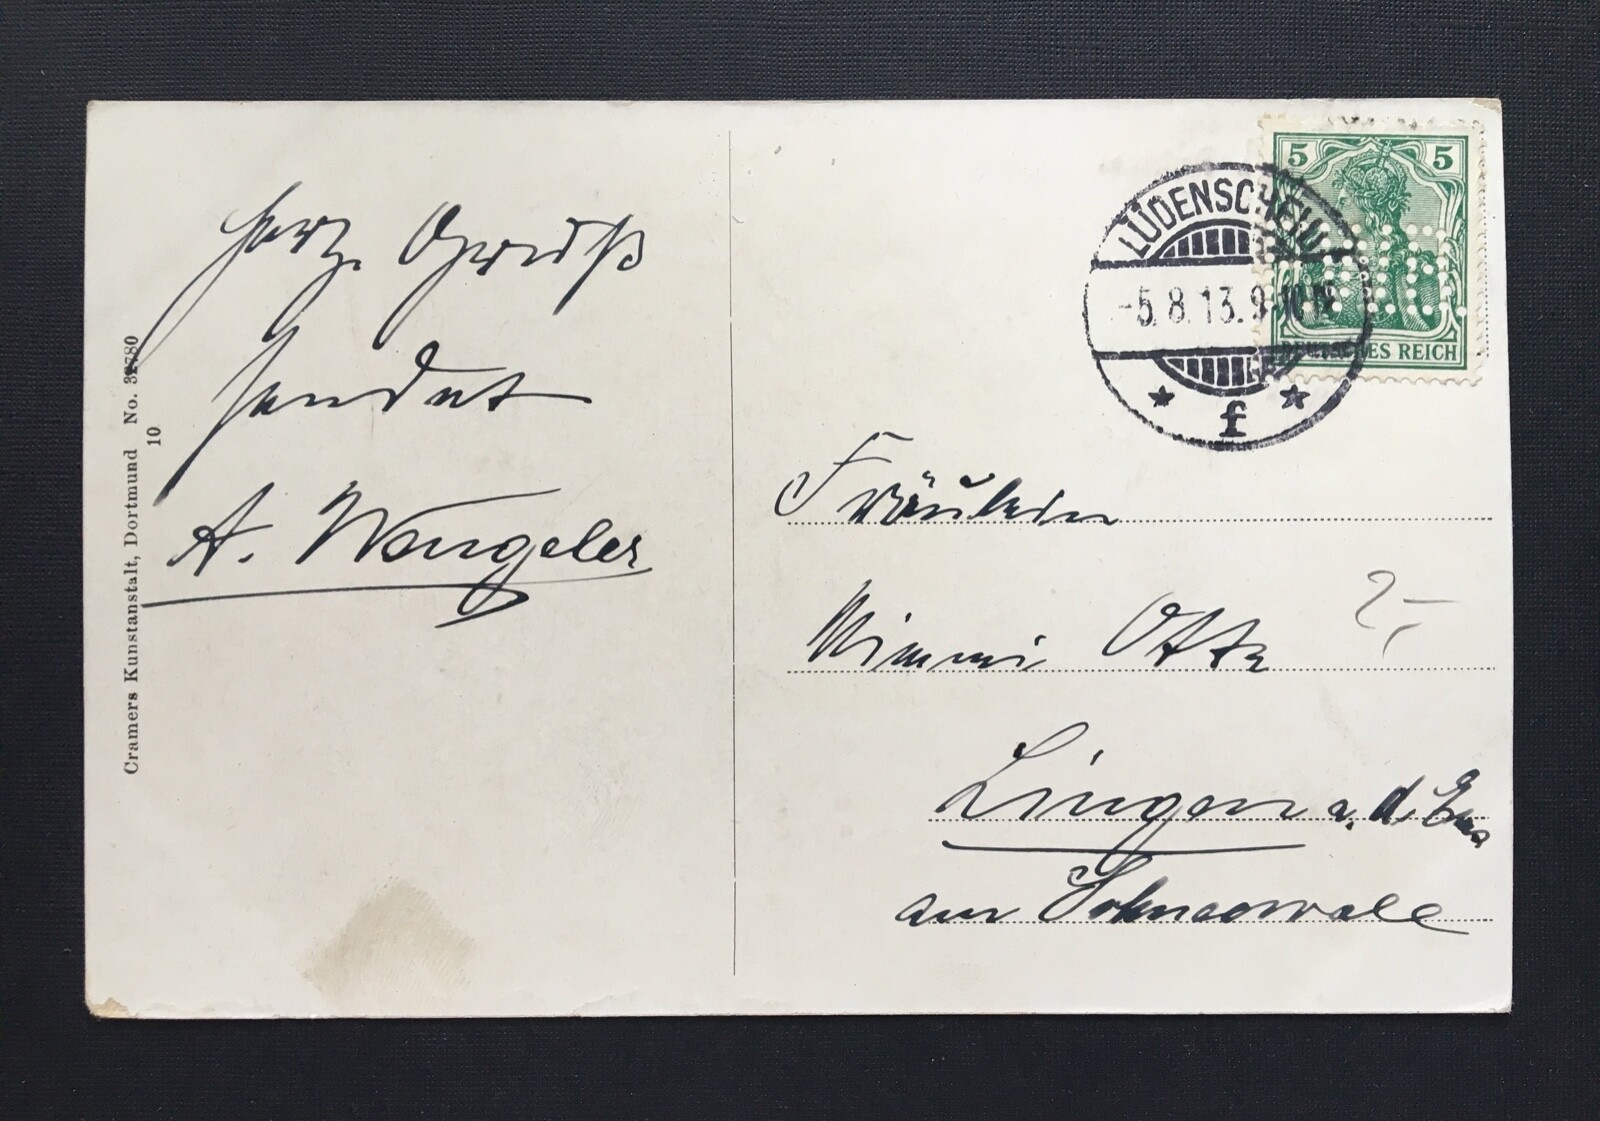 Herz. Gruß
sendet
A. Wengeler
Cramers Kunstanstalt, Dortmund No. 32780
10
5 5
DEUTSCHES REICH
LÜDENSCHEID
-5.8.13.9-10 N
* f *
Fräulein
Mimmi Otte
2,-
Lingen a. d. Ems
am